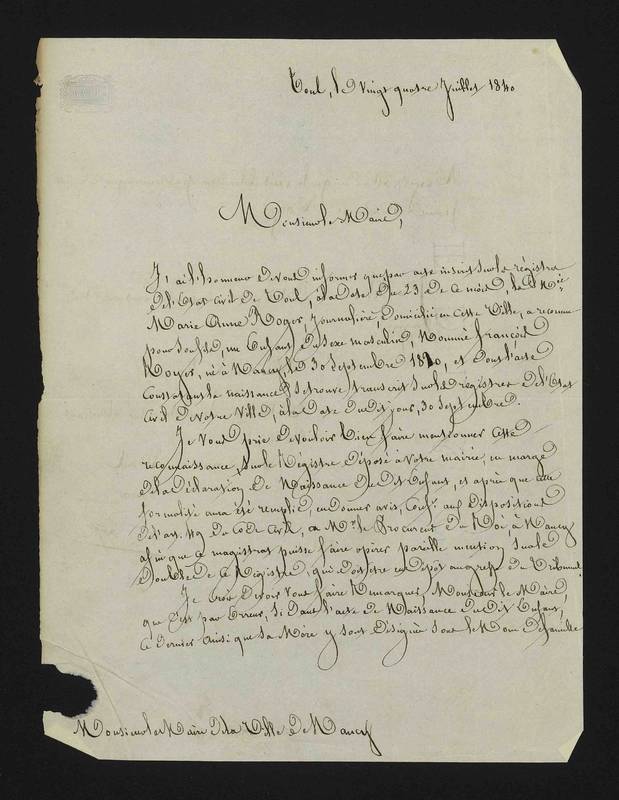 Toul, le vingt quatre Juillet 1840
Monsieur le Maire,
J'ai l'honneur de vous informer que par acte inscrit sur le régistre
de l'Etat civil de Toul, à la date du 23 de ce mois, la
Marie Anne Royer, journalière, domiciliée en cette Ville, a reconnu
pour son fils, un Enfant du sexe masculin, Nommé françois
Royer, né à Nancy, le 30 Septembre 1820, et dont l'acte
Constatant la naissance se trouve transcrit sur le régistre de l'Etat
Civil de votre Ville, à la date dudit jour, 30 Septembre.
Je Vous prie de vouloir bien faire mentionner cette
reconnaissance, sur le Régistre déposé à votre mairie, en marge
de la déclaration de Naissance du dit Enfant, et après que cette
formalité aura été remplie, en donner avis, Conf.t aux dispositions
de l'art. 49 du Code Civil, à Mr. le Procureur du Roi, à Nancy
afin que ce magistrat puisse faire opérer pareille mention sur le
Double de ce Régistre, qui doit être en dépôt au greffe du Tribunal.
Je Crois devoir Vous faire Remarquer, Monsieur le Maire,
que c'est par Erreur, si dans l'acte de Naissance du dit Enfant,
ce dernier ainsi que sa Mère y sont désignés sous le Nom de famille
Monsieur le Maire de la Ville de Nancy